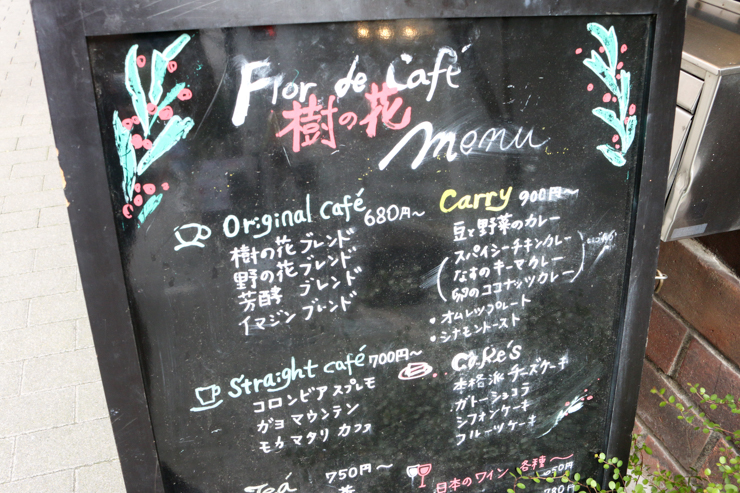 Flor de Café
樹の花
menu
Original Café 680円〜
樹の花ブレンド
野の花ブレンド
芳酵 ブレンド
イマジンブレンド
Straight café 700円〜
コロンビア スプレモ
ガヨ マウンテン
モカ マタリ カファ
Tea 750円〜
Carry 900円〜
豆と野菜のカレー
スパイシーチキンカレー
なすのキーマカレー
卵のココナッツカレー
・オムレツプレート
・シナモントースト
Cake's
本格派チーズケーキ
ガトーショコラ
シフォンケーキ
フルーツケーキ
日本のワイン 各種〜